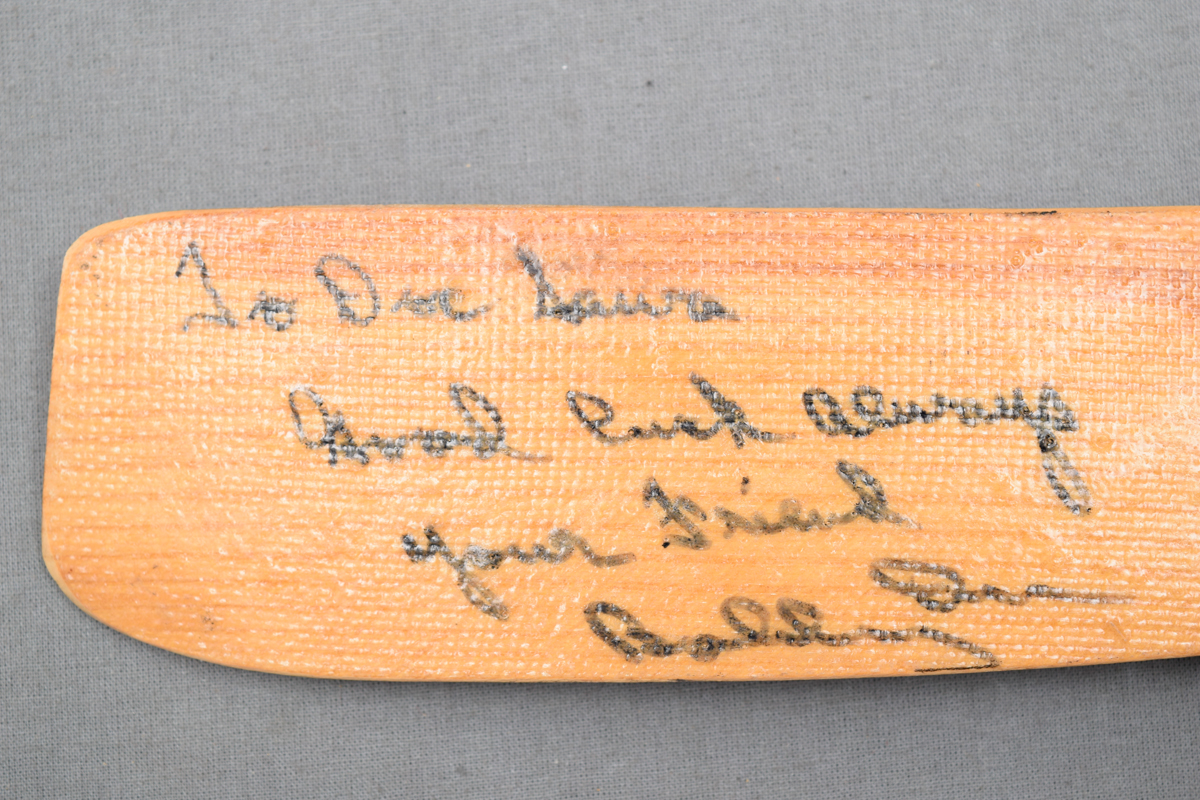 To Doc
Good luck always
your Friend
Bobby Orr